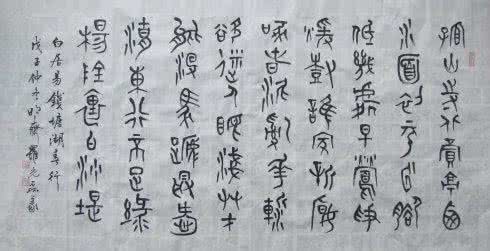 孤山寺北賈亭西
水面初平雲腳
低幾處早鶯爭
暖樹誰家新燕
啄春泥亂花漸
欲迷人眼淺草才
能沒馬蹄最愛
湖東行不足綠
楊陰裏白沙堤
白居易錢塘湖春行
戊子仲冬